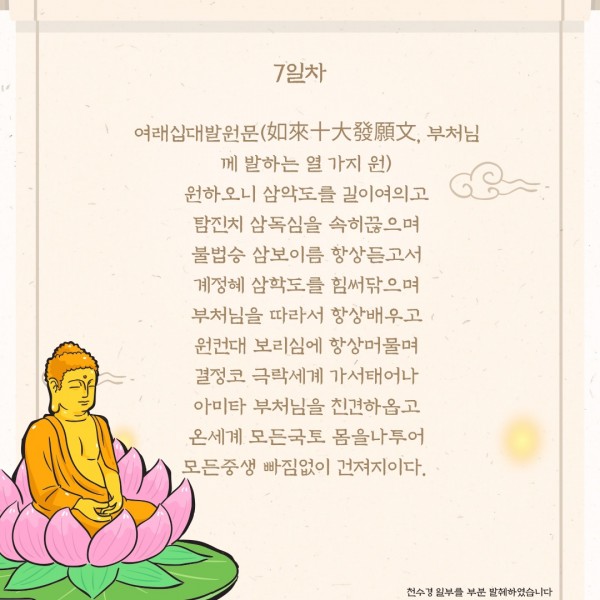 7일차
여래십대발원문(如來十大發願文, 부처님
께 발하는 열 가지 원)
원하오니 삼악도를 길이여의고
탐진치 삼독심을 속히끊으며
불법승 삼보이름 항상듣고서
계정혜 삼학도를 힘써닦으며
부처님을 따라서 항상배우고
원컨대 보리심에 항상머물며
결정코 극락세계 가서태어나
아미타 부처님을 친견하옵고
온세계 모든국토 몸을나투어
모든중생 빠짐없이 건져지이다.
천수경 일부를 부분 발췌하였습니다